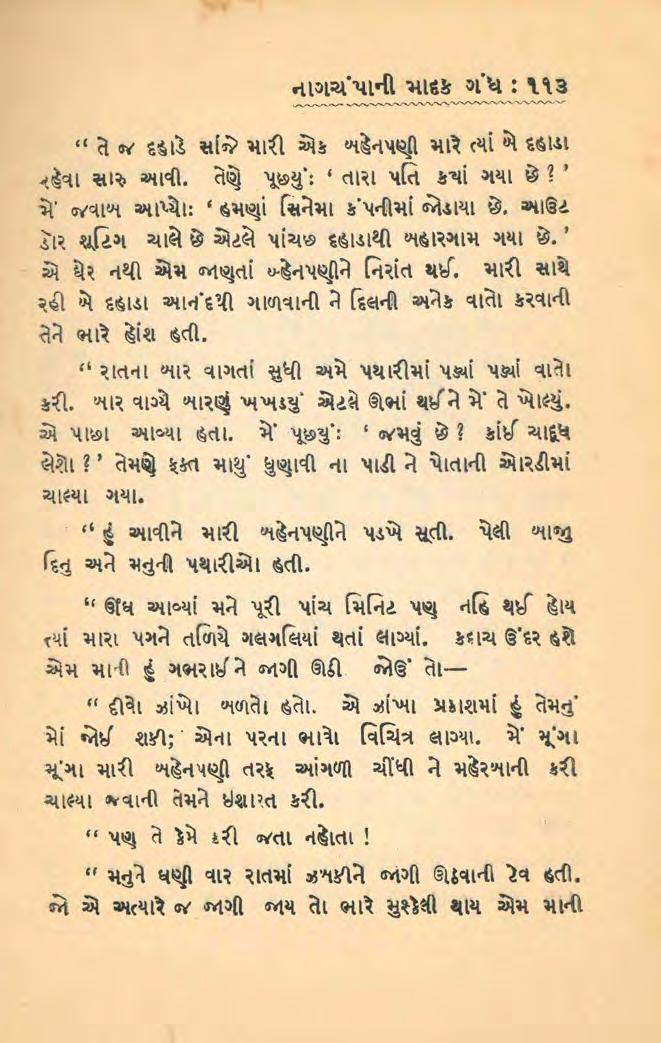 નાગચંપાની માદક ગંધ : ૧૧૩
“ તે જ દહાડે સાંજે મારી એક બહેનપણી મારે ત્યાં બે દહાડા
રહેવા સારુ આવી. તેણે પૂછ્યુંઃ ‘ તારા પતિ કયાં ગયા છે ? ’
મેં જવાબ આપ્યોઃ ‘ હમણાં સિનેમા કંપનીમાં જોડાયા છે. આઉટ
ડોર શૂટિંગ ચાલે છે એટલે પાંચછ દહાડાથી બહારગામ ગયા છે. ’
એ ઘેર નથી એમ જાણતાં બ્હેનપણીને નિરાંત થઈ. મારી સાથે
રહી બે દહાડા આનંદથી ગાળવાની ને દિલની અનેક વાતો કરવાની
તેને ભારે હોંશ હતી.
“ રાતના બાર વાગતાં સુધી અમે પથારીમાં પડ્યાં પડ્યાં વાતો
કરી. બાર વાગ્યે બારણું ખખડયું એટલે ઊભાં થઈને મેં તે ખોલ્યું.
એ પાછા આવ્યા હતા. મેં પૂછ્યુંઃ ‘ જમવું છે ? કાંઈ ચાદૂધ
લેશો ? ’ તેમણે ફક્ત માથું ધુણાવી ના પાડી ને પોતાની ઓરડીમાં
ચાલ્યા ગયા.
“ હું આવીને મારી બહેનપણીને પડખે સૂતી. પેલી બાજુ
દિનુ અને મનુની પથારીઓ હતી.
“ ઊંઘ આવ્યાં મને પૂરી પાંચ મિનિટ પણ નહિ થઈ હોય
ત્યાં મારા પગને તળિયે ગલગલિયાં થતાં લાગ્યાં. કદાચ ઉંદર હશે
એમ માની હું ગભરાઈને જાગી ઊઠી જોઉં તો—
“ દીવો ઝાંખો બળતો હતો. એ ઝાંખા પ્રકાશમાં હું તેમનું
મોં જોઈ શકી; એના પરના ભાવો વિચિત્ર લાગ્યા. મેં મૂંગા
મૂંગા મારી બહેનપણી તરફ આંગળી ચીંધી ને મહેરબાની કરી
ચાલ્યા જવાની તેમને ઇશારત કરી.
“ પણ તે કેમે કરી જતા નહોતા !
“ મનુને ઘણી વાર રાતમાં ઝબકીને જાગી ઊઠવાની ટેવ હતી.
જો એ અત્યારે જ જાગી જાય તો ભારે મુશ્કેલી થાય એમ માની